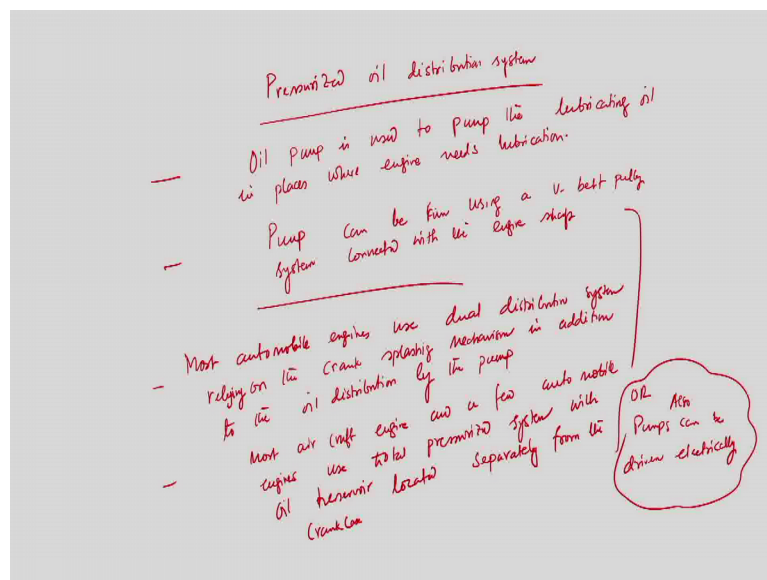 Pressurized oil distribution system
— Oil pump is used to pump the lubricating oil
in places where engine needs lubrication.
— Pump can be run using a V-belt pulley
system connected with the engine shaft
— Most automobile engines use dual distribution system
relying on the crank splashing mechanism in addition
to the oil distribution by the pump
— Most air craft engine and a few automobile
engines use total pressurized system with
oil reservoir located separately from the
crankcase
OR Also
Pumps can be
driven electrically